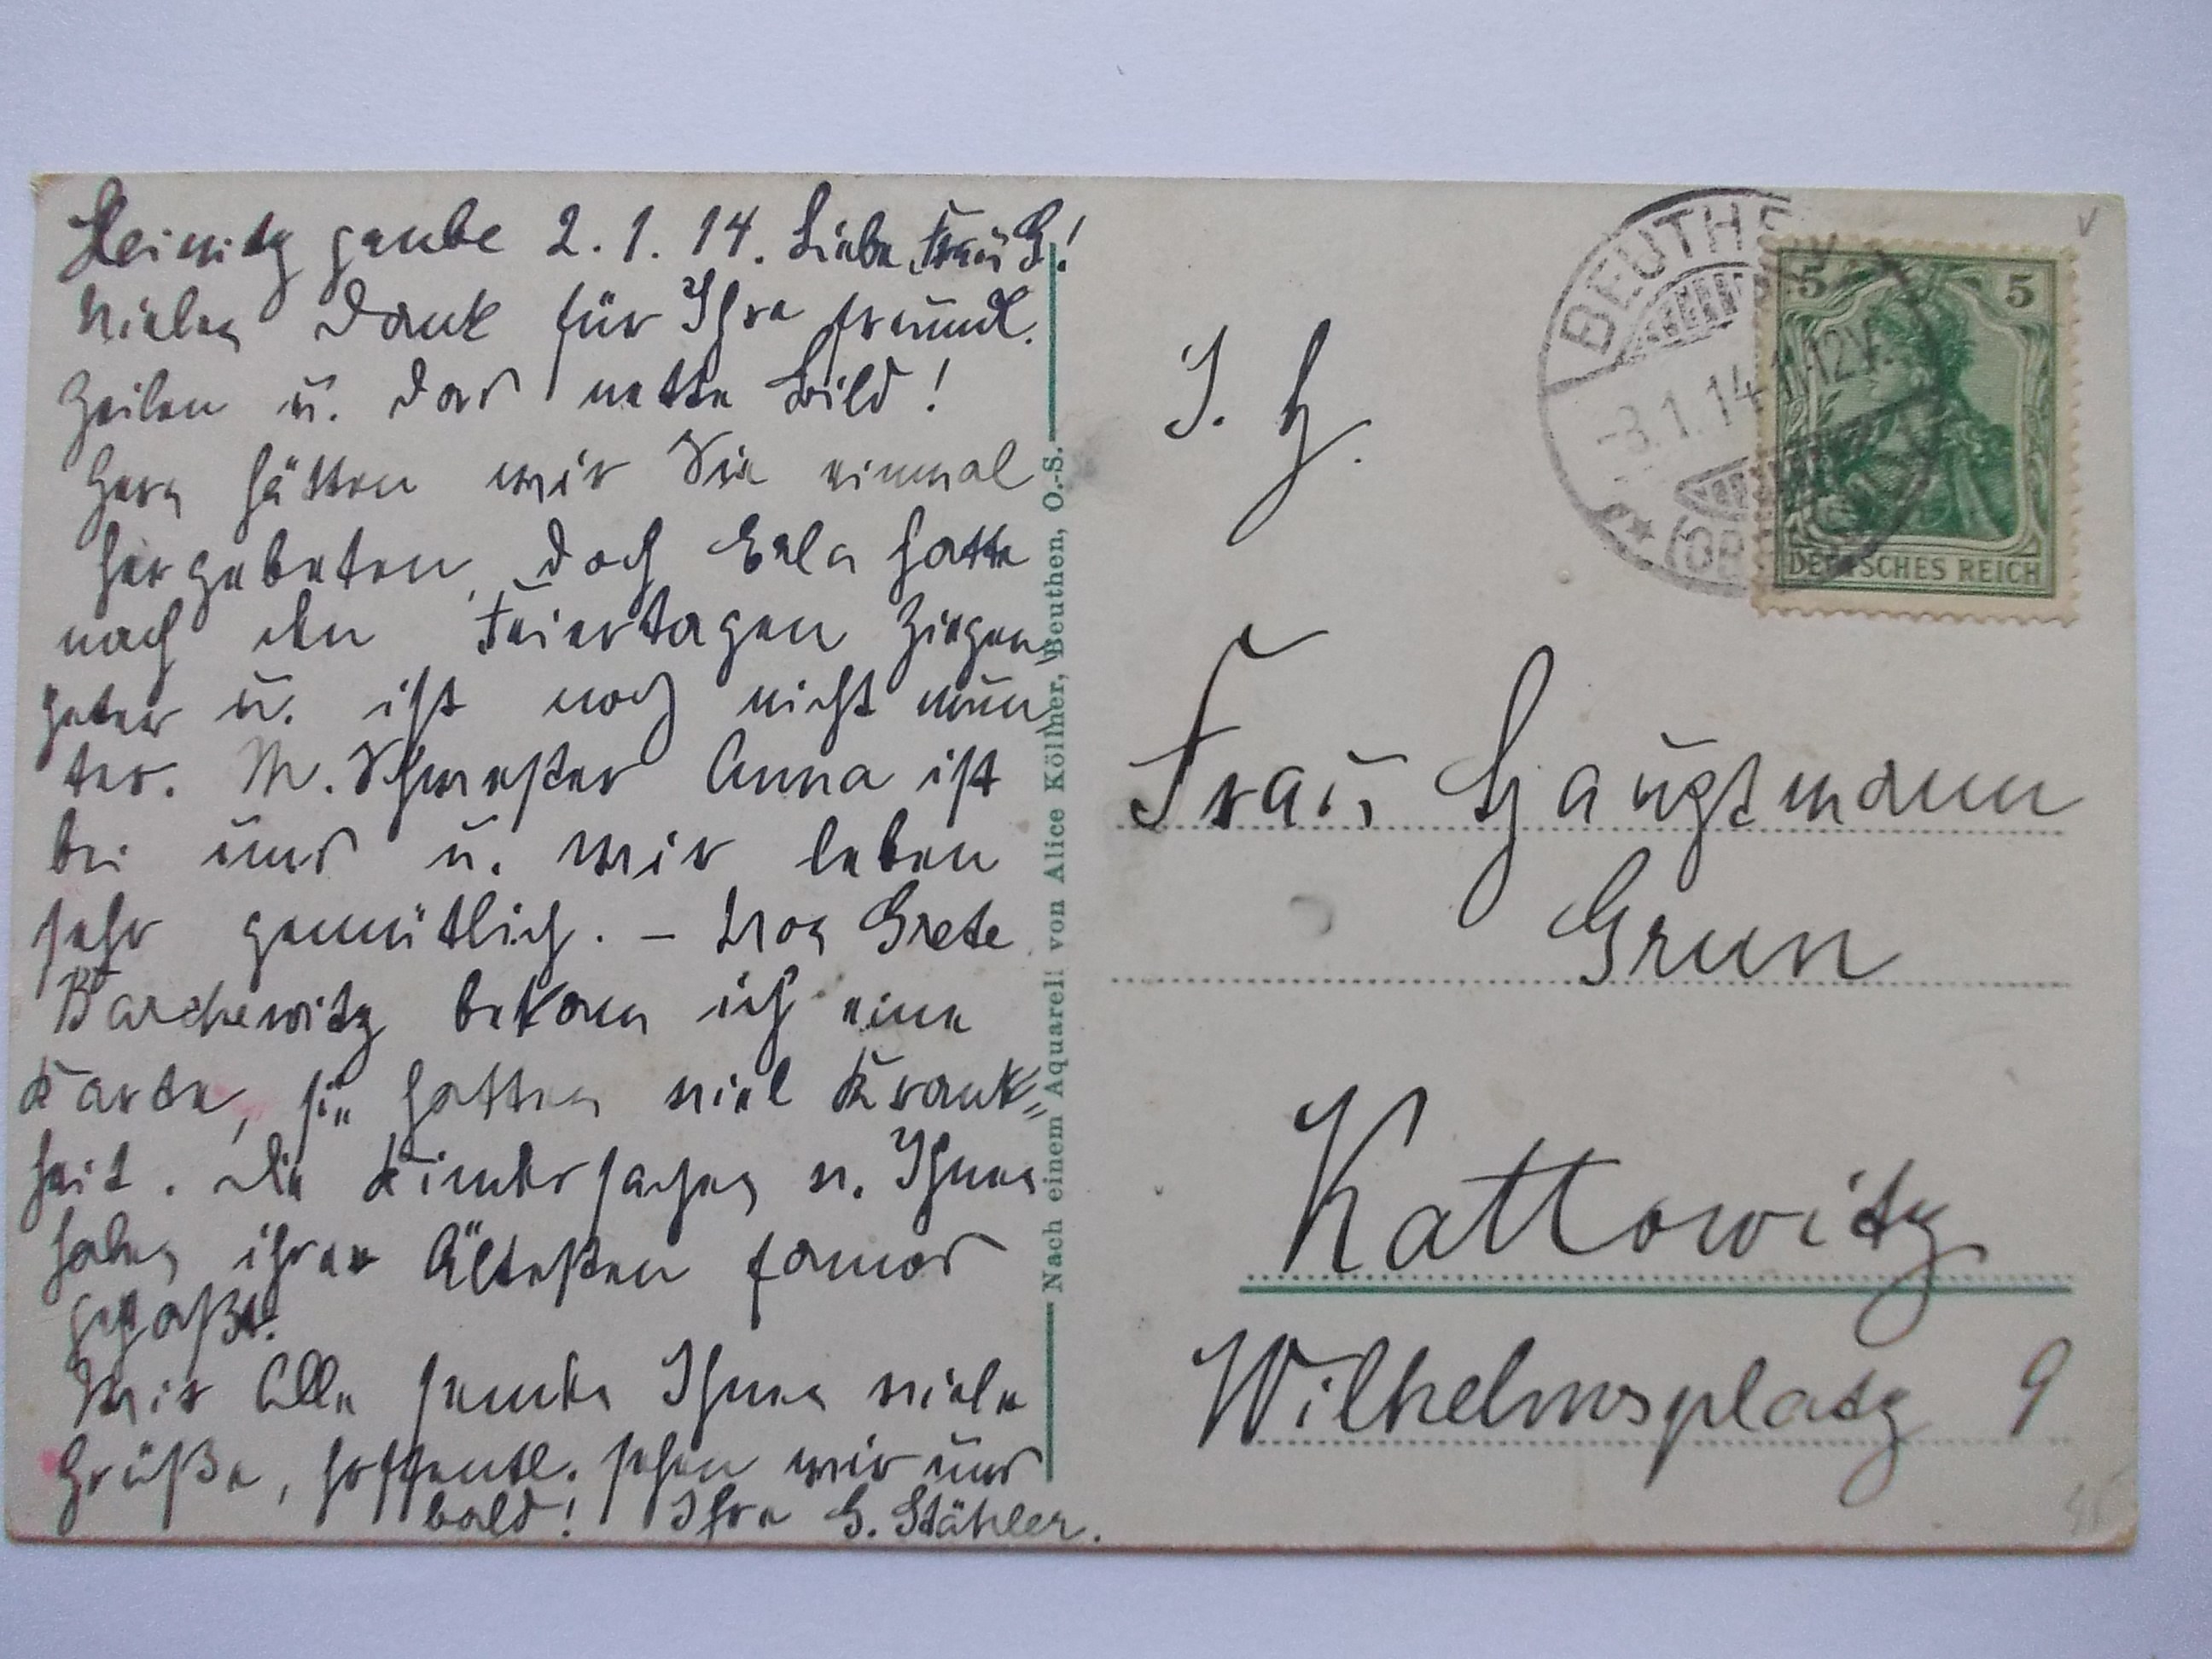 Heinitzgrube 2.1.14. Liebe Frau G.!
Vielen Dank für Ihre freundl.
Zeilen u. das nette Bild!
Gern hätten wir Sie einmal
hergebeten, doch Erla hatte
nach den Feiertagen Ziegen-
peter u. ist noch nicht mun-
ter. M. Schwester Anna ist
bei uns u. wir leben
sehr gemütlich. – Von Grete
Barchewitz bekam ich eine
Karte, sie hatten viel Krank=
heit. Die Kindersachen v. Ihnen
haben ihrer Ältesten famos
gepaßt.
Wir Alle senden Ihnen viele
Grüße, hoffentl. sehen wir uns
bald! Ihre G. Stähler.
Nach einem Aquarell von Alice Köllner, Beuthen, O.-S.
I. H.
BEUTHEN
-3.1.14 11-12V.
5 5
DEUTSCHES REICH
Frau Hauptmann
Grun
Kattowitz
Wilhelmsplatz 9